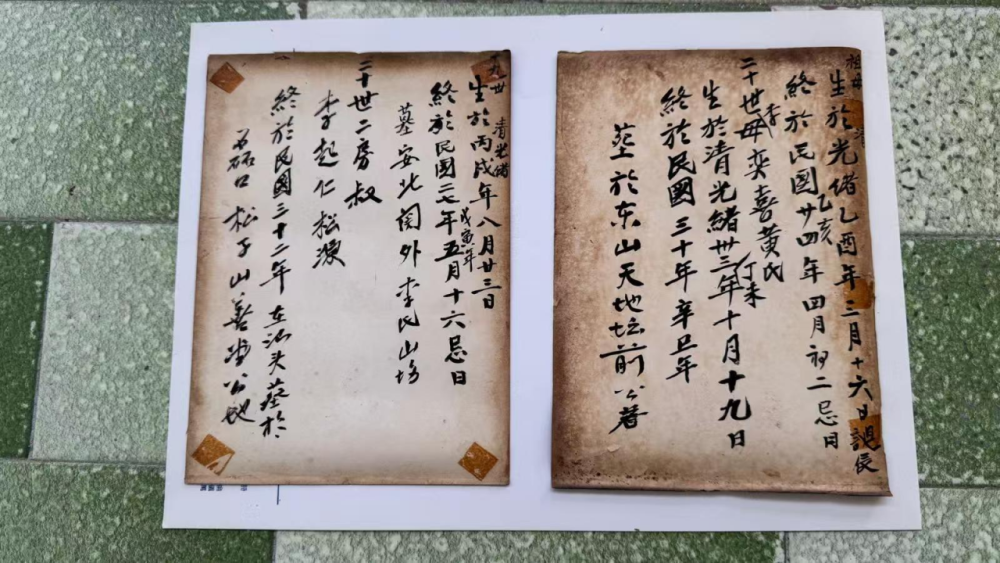 生於光緒乙酉年三月十六日誕辰
終於民國廿四年四月初二忌日
乙亥
二十世母李奕喜黃氏
生於清光緒卅三年十月十九日
丁未
終於民國三十年辛旦年
塟於东山天地坛前公者
十九世
清光緒
生於丙戌年八月廿三日
終於民國二七年五月十六忌日
戊寅年
墓安北閣外李氏山塲
二十世二房叔
李起仁松濮
終於民國三十二年在汕头塟於
磊口松子山善堂公地